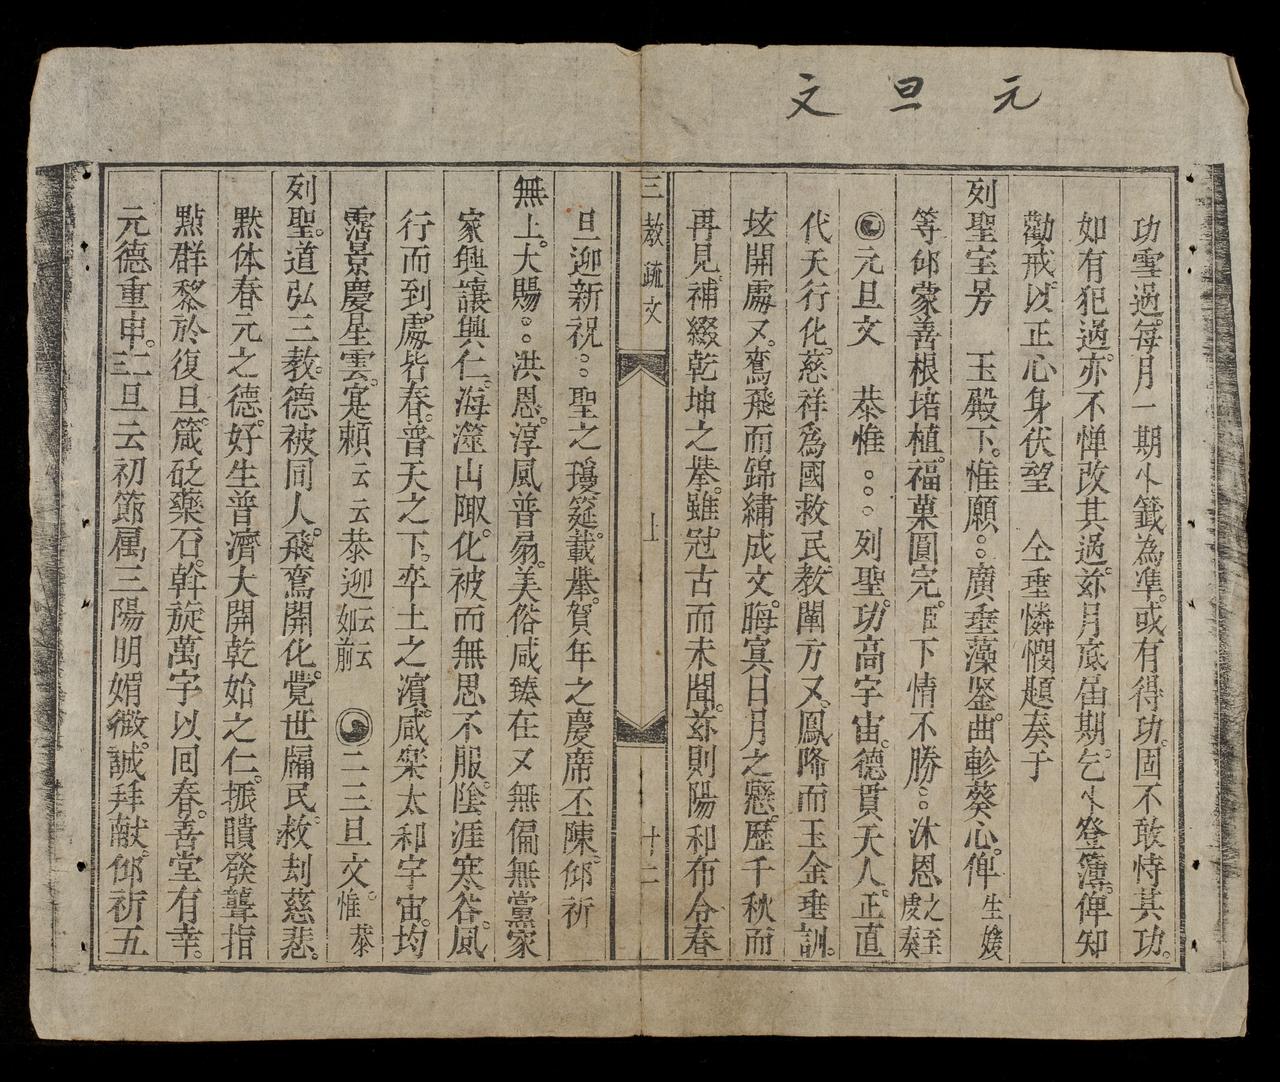 元旦文
功雪過。每月一期小籤為準。或有得功。固不敢恃其功。
如有犯過。亦不憚改其過。玆月底届期。乞小登簿。俾知
勸戒。以正心身伏望 仝垂憐憫題奏于
列聖宝号 玉殿下。惟願。。廣垂藻鉴。曲軫葵心。俾生嫒
等仰蒙善根培植。福菓圓完。臣下情不勝。。沐恩之至虔奏
元旦文 恭惟。。。列聖。功高宇宙。德貫天人。正直
代天行化。慈祥為國救民。教闡方又。鳳降而玉金垂訓。
坛開處又。鸞飛而錦繡成文。晦㝠日月之懸。歷千秋而
再見。補綴乾坤之挙。雖冠古而未聞。玆則陽和布令春
三教疏文
上
十二
旦迎新祝。。聖之瓊筵。載挙。賀年之慶席丕陳。仰祈
無上。大賜。。洪恩。淳風普易。美俗咸臻在又無偏無黨家
家興讓興仁。海澨山陬。化被而無思不服。陰涯寒谷。風
行而到。處皆春。普天之下。卒土之濱。咸樂太和宇宙。均
霑景慶星雲。寔賴云云恭迎云云如前 二三旦文。恭惟
列聖。道弘三教。德被同人。飛鸞開化。覺世牖民。救刦慈悲。
黙体春元之德。好生普濟大開乾始之仁。振瞶發聾指
點群黎於復旦。箴砭藥石。斡旋萬字以回春。善堂有幸。
元德重申。二三旦云初節属三陽明媚微。誠拜献。仰祈五